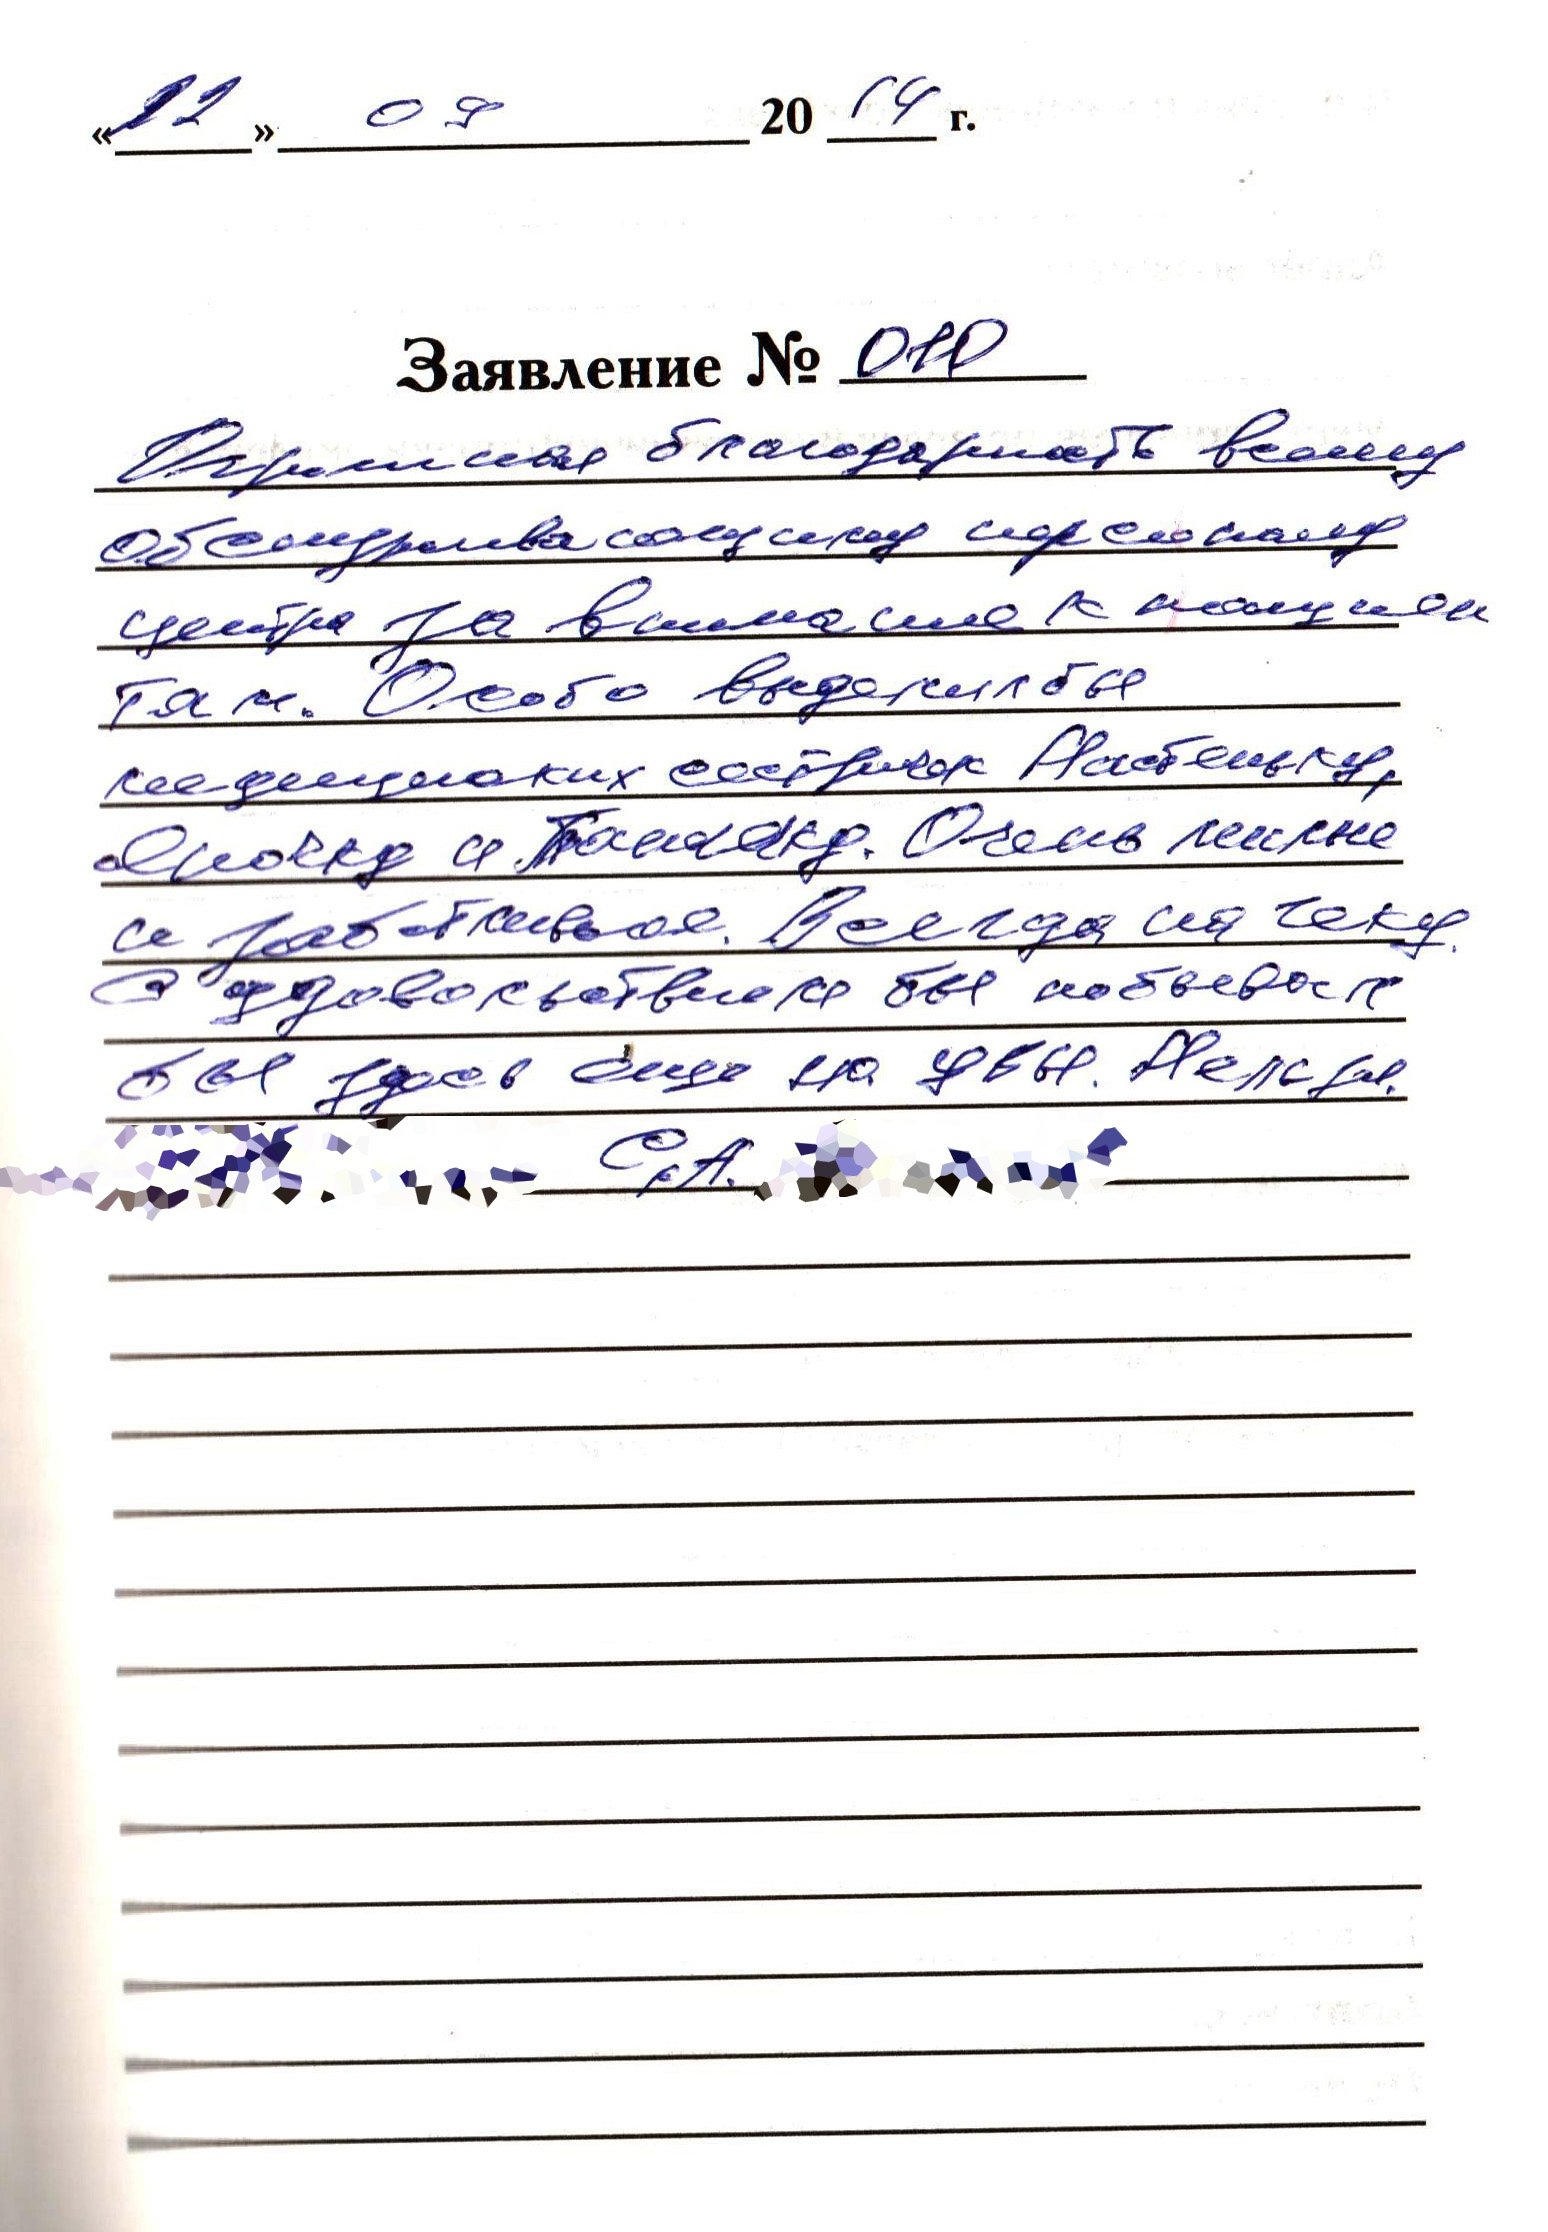 «22» 09 2014 г.
Заявление № 010
Огромная благодарность всему
обслуживающему персоналу
центра за внимание к пациен
там. Особо выделил бы
медицинских сестричек Настеньку,
Ирочку и Танечку. Очень милые
и заботливые. Всегда на чеку.
С удовольствием бы побывал
бы здесь еще на увы. Нельзя.
С.А.